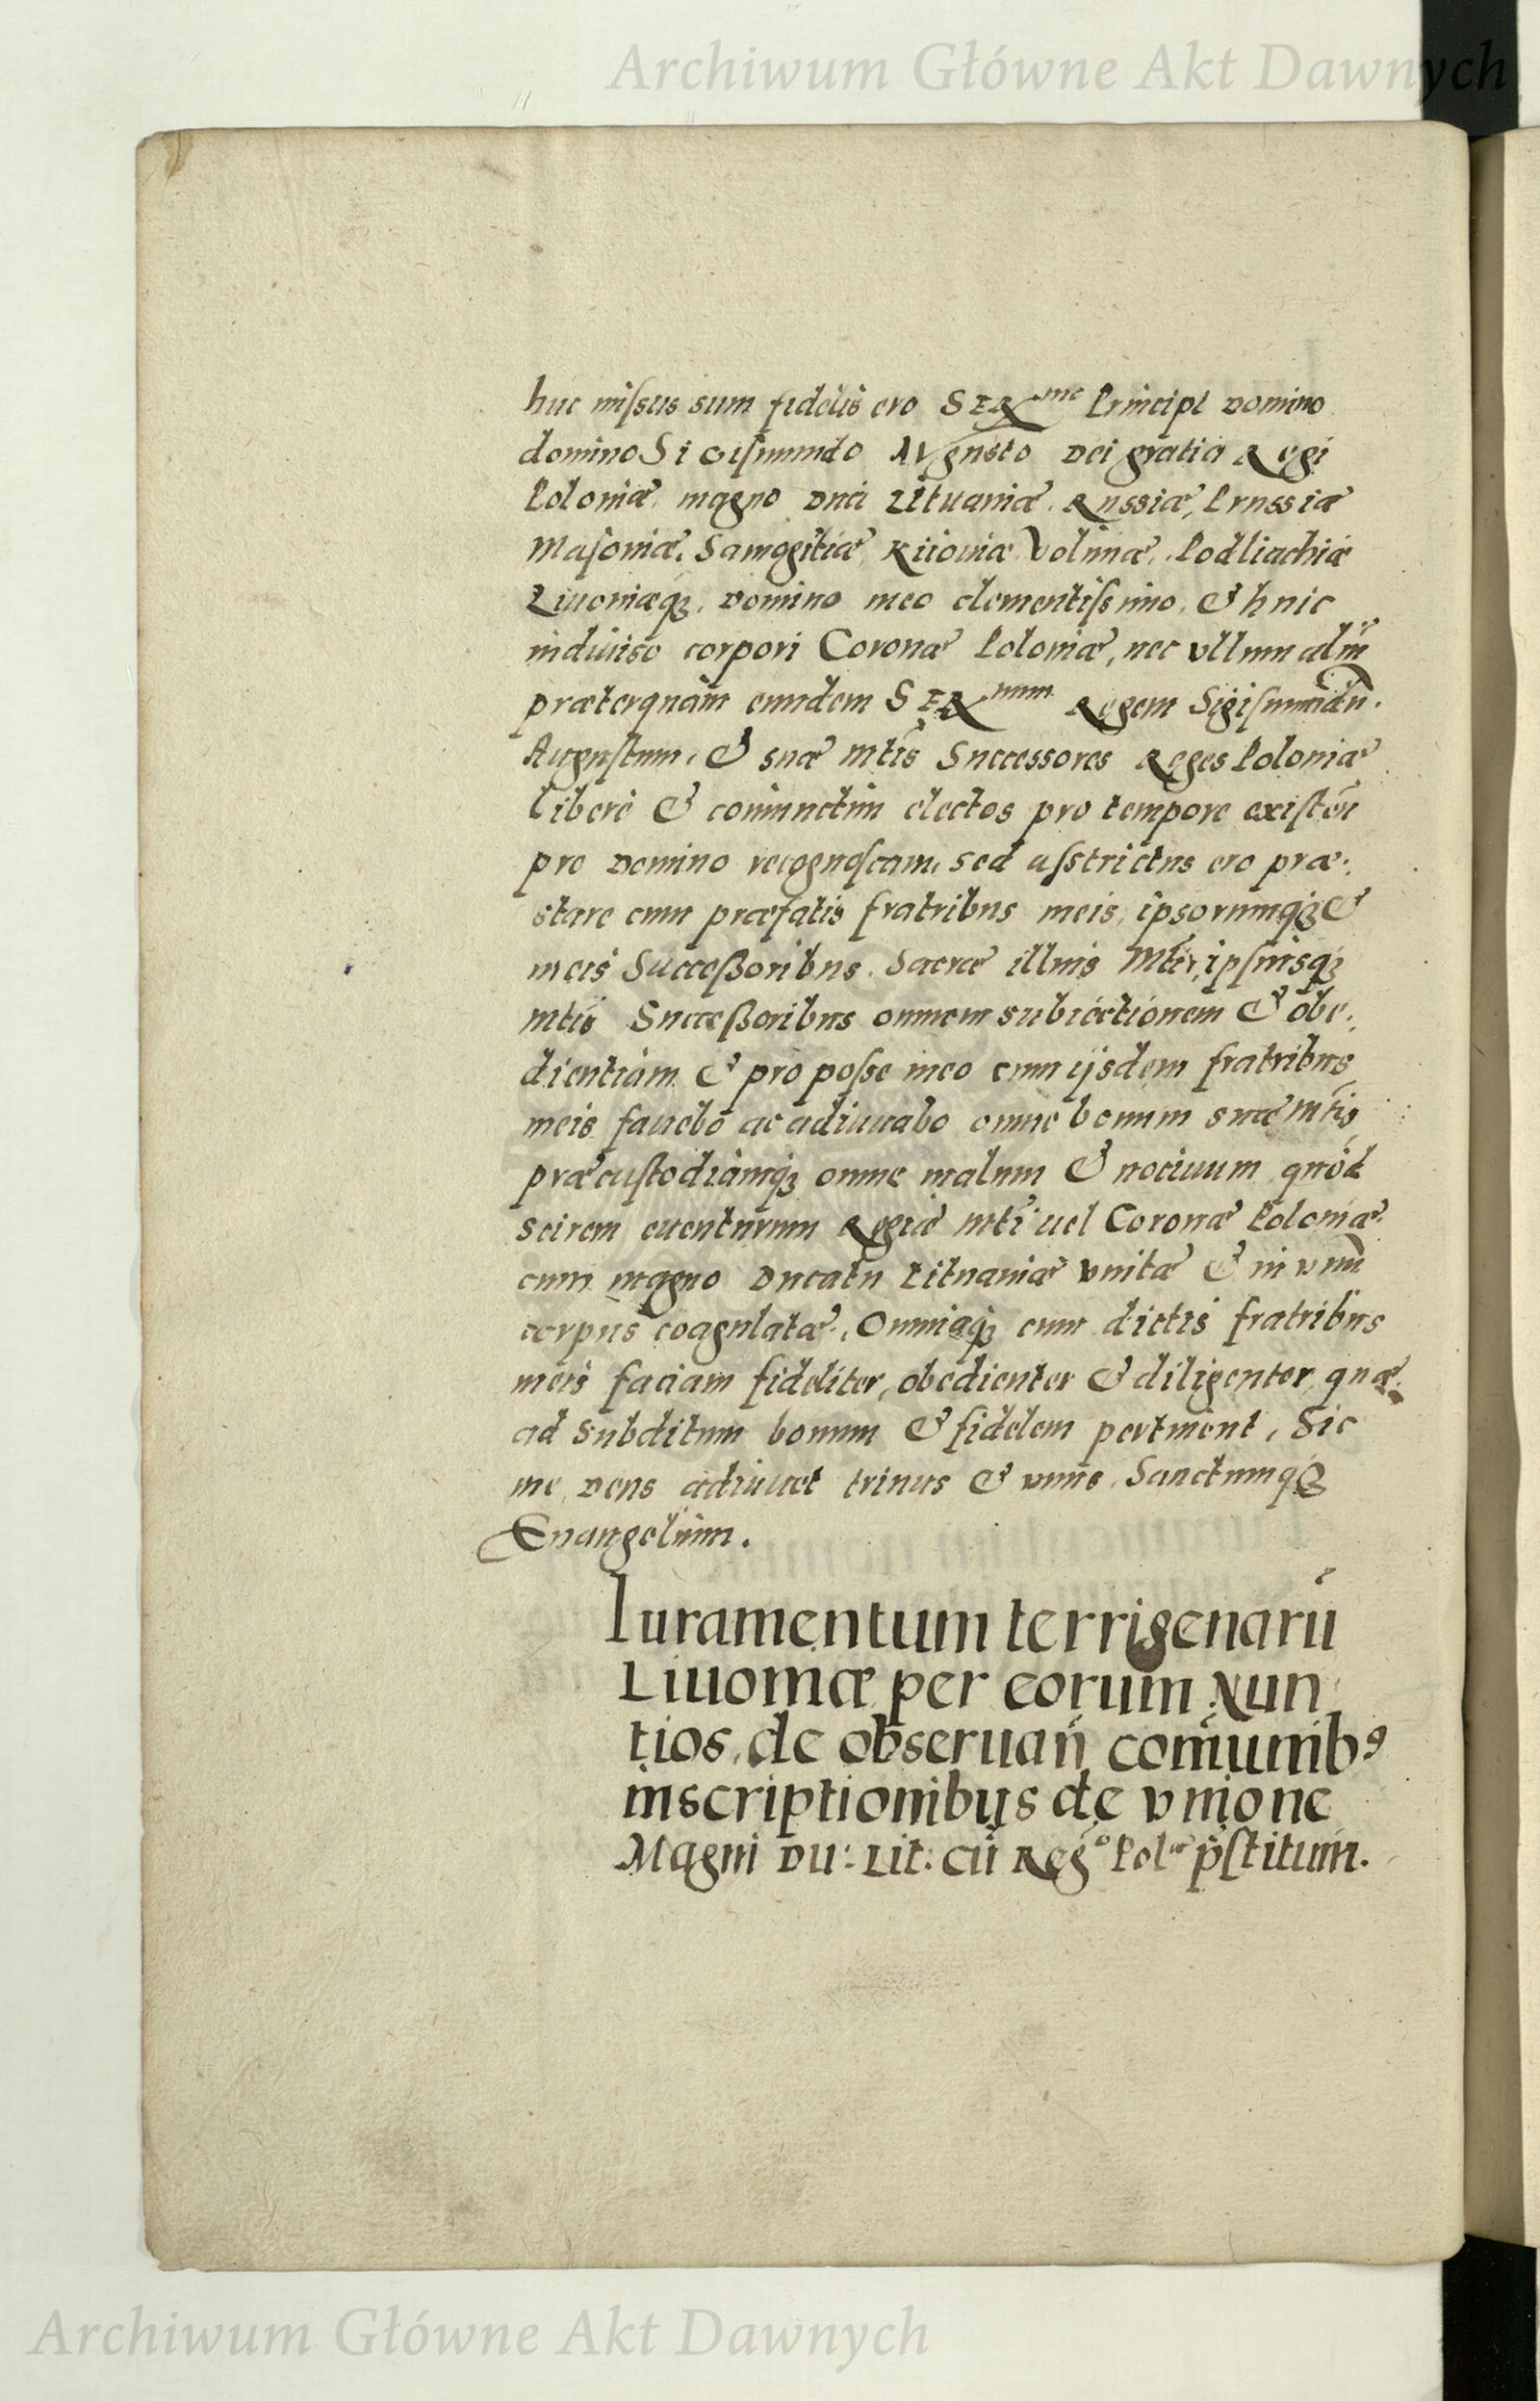 Archiwum Główne Akt Dawnych
huc missus sum fidelis ero SER^me Principi Domino
domino Sigismundo Augusto Dei gratia Regi
Poloniæ, magno Duci Lituaniæ, Russiæ, Prussiæ
Masoniæ, Samogitiæ, Kiioniæ Voliniæ, Podliachiæ
Liuoniæq;, Domino meo clementissimo, & huic
indiuiso corpori Coronæ Poloniæ, nec vllum aliū
præterquàm eundem SER^mum Regem Sigismundū
Augustum, & suæ Mtis Successores Reges Poloniæ
liberè & coniunctim electos pro tempore existeñ
pro Domino recognoscam, sed asstrictus ero præ:
stare cum præfatis fratribus meis, ipsorumq; &
meis Successoribus, Sacræ illius Mti, ipsiusq;
Mtis Successoribus omnem subiectionem & obe:
dientiam & pro posse meo cum ijsdem fratribus
meis fauebo ac adiuuabo omne bonum suæ Mtis
præcustodiamq; omne malum & nociuum, quòd
scirem euenturum Regiæ Mti uel Coronæ Poloniæ
cum magno Ducatu Lituaniæ vnitæ & in vnū
corpus coagulatæ, Omniaq; cum dictis fratribus
meis faciam fideliter, obedienter & diligenter, quæ
ad subditum bonum & fidelem pertinent, Sic
me Deus adiuuet trinus & vnus, Sanctumq;
Euangelium.
Iuramentum terrigenarū
Liuoniæ per eorum Nun
tios, de obseruañ com̃unib9
inscriptionibus de vnione
Magni Du: Lit: cū Reg° Pol^æ p̃stitum.
Archiwum Główne Akt Dawnych